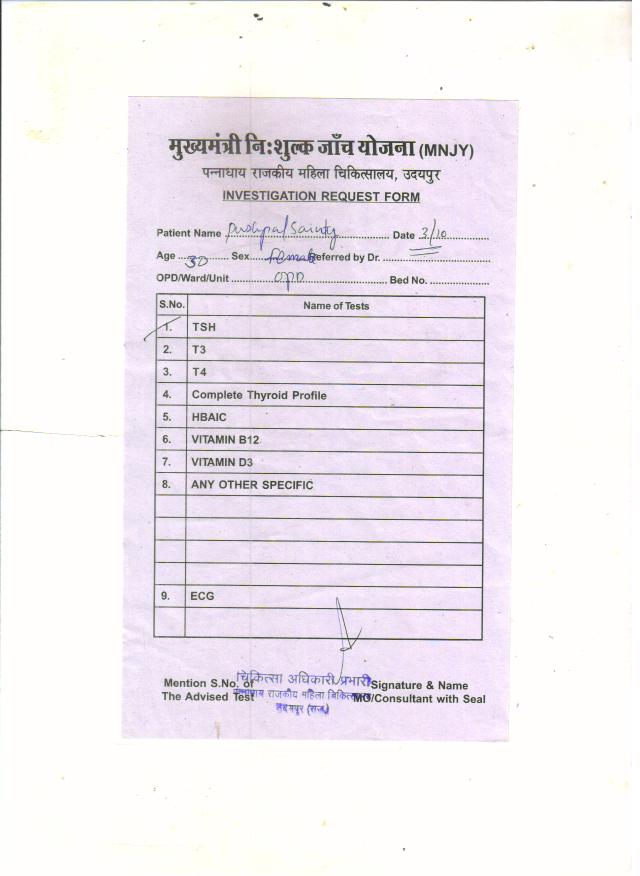 मुख्यमंत्री नि:शुल्क जाँच योजना (MNJY)
पन्नाधाय राजकीय महिला चिकित्सालय, उदयपुर
INVESTIGATION REQUEST FORM
Patient Name Pushpa/ Date 3/10
Age 30 Sex Female Referred by Dr.
OPD/Ward/Unit OPD Bed No.
S.No. Name of Tests
1. TSH
2. T3
3. T4
4. Complete Thyroid Profile
5. HBAIC
6. VITAMIN B12
7. VITAMIN D3
8. ANY OTHER SPECIFIC
9. ECG
चिकित्सा अधिकारी प्रभारी
पन्नाधाय राजकीय महिला चिकित्सालय
उदयपुर (राज.)
Mention S.No. of Signature & Name
The Advised Test MO/Consultant with Seal